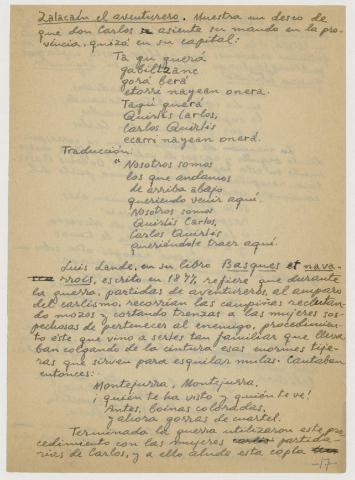 Zalacaín el aventurero. Muestra un deseo de
que don Carlos asiente su mando en la pro-
vincia, quizá en su capital:
Ta gu guerá
gabiltzanc
gora berá
etorri nayean onera.
Tagu guerá
Quirlis Carlos,
Carlos Quirlis
ecarri nayean onerá.
Traducción:
"Nosotros somos
los que andamos
de arriba abajo
queriendo venir aquí
Nosotros somos
Quirlis Carlos,
Carlos Quirlis
queriéndole traer aquí.
Luis Lande, en su libro Basques et nava-
rrois, escrito en 1877 refiere que durante
la guerra, partidas de aventureros, al amparo
del carlismo, recorrían las campiñas reclutan-
do mozos y cortando trenzas a las mujeres sos-
pechosas de pertenecer al enemigo, procedimien-
to éste que vino a serles tan familiar que lleva-
ban colgando de la cintura esas enormes tije-
ras que sirven para esquilar mulas. Cantaban
entonces:
Montejurra, Montejurra,
¡quién te ha visto y quién te ve!
Antes, boinas coloradas,
y ahora gorras de cuartel.
Terminada la guerra utilizaron este pro-
cedimiento con las mujeres partida-
rias de Carlos, y a ello alude esta copla
-17-